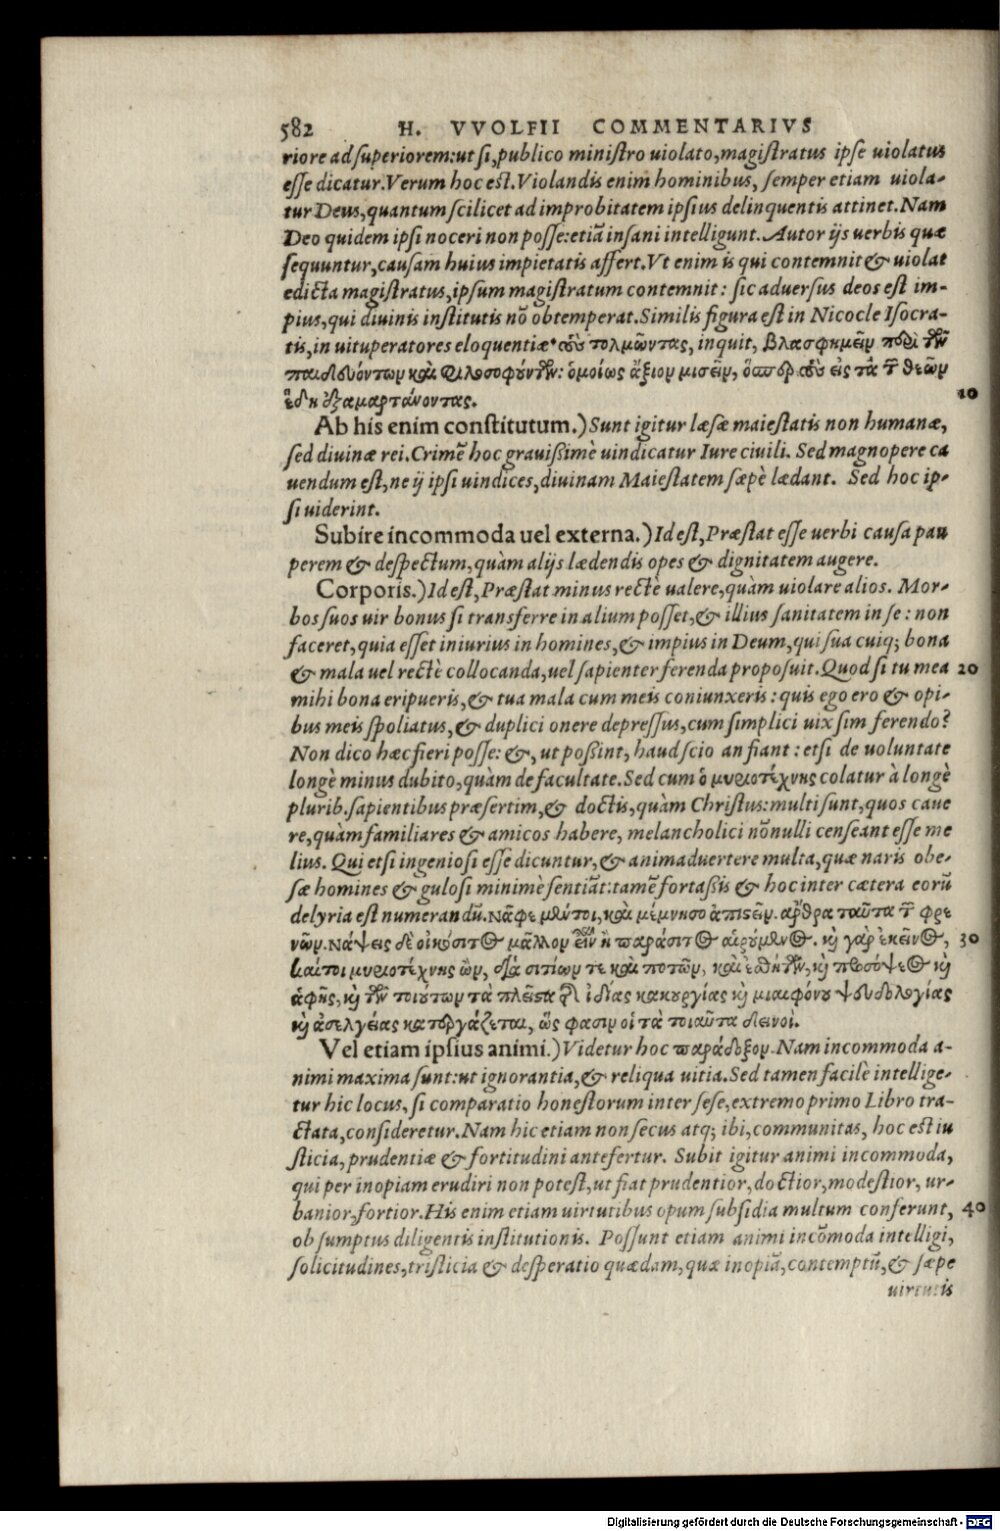 582 H. VVOLFII COMMENTARIVS
riore ad superiorem: ut si, publico ministro uiolato, magistratus ipse uiolatus
esse dicatur. Verum hoc est. Violandis enim hominibus, semper etiam uiola-
tur Deus, quantum scilicet ad improbitatem ipsius delinquentis attinet. Nam
Deo quidem ipsi noceri non posse: etiã insani intelligunt. Autor ijs uerbis quæ
sequuntur, causam huius impietatis affert. Vt enim is qui contemnit & uiolat
edicta magistratus, ipsum magistratum contemnit: sic aduersus deos est im-
pius, qui diuinis institutis nõ obtemperat. Similis figura est in Nicocle Isocra-
tis, in uituperatores eloquentiæ· τοὺς τολμῶντας, inquit, βλασφημεῖν περὶ τῶν
παιδευόντων καὶ φιλοσοφούντων: ὁμοίως ἄξιον μισεῖν, ὥσπερ τοὺς εἰς τὰ τῶν θεῶν
ἕδη ἐξαμαρτάνοντας. 10
Ab his enim constitutum.) Sunt igitur læsæ maiestatis non humanæ,
sed diuinæ rei. Crimẽ hoc grauißimè uindicatur Iure ciuili. Sed magnopere ca
uendum est, ne ij ipsi uindices, diuinam Maiestatem sæpè lædant. Sed hoc ip-
si uiderint.
Subire incommoda uel externa.) Id est, Præstat esse uerbi causa pau
perem & despectum, quàm alijs lædendis opes & dignitatem augere.
Corporis.) Id est, Præstat minus rectè ualere, quàm uiolare alios. Mor-
bos suos uir bonus si transferre in alium posset, & illius sanitatem in se: non
faceret, quia esset iniurius in homines, & impius in Deum, qui sua cuiq; bona
& mala uel rectè collocanda, uel sapienter ferenda proposuit. Quod si tu mea 20
mihi bona eripueris, & tua mala cum meis coniunxeris: quis ego ero & opi-
bus meis spoliatus, & duplici onere depressus, cum simplici uix sim ferendo?
Non dico hæc fieri posse: &, ut poßint, haud scio an fiant: etsi de uoluntate
longè minus dubito, quàm de facultate. Sed cum ὁ μυριοτέχνης colatur à longè
plurib. sapientibus præsertim, & doctis, quàm Christus: multi sunt, quos caue
re, quàm familiares & amicos habere, melancholici nõnulli censeant esse me
lius. Qui etsi ingeniosi esse dicuntur, & animaduertere multa, quæ naris obe-
sæ homines & gulosi minimè sentiãt: tamẽ fortaßis & hoc inter cætera eorũ
delyria est numerandũ. Νᾶφε μέντοι, καὶ μέμνησο ἀπιστεῖν. ἄρθρα ταῦτα τῶν φρε
νῶν. νάψεις δὲ οἰκόσιτος μᾶλλον εἶναι ἢ παράσιτος αἱρούμενος. καὶ γὰρ ἐκεῖνος, 30
καίτοι μυριοτέχνης ὢν, διὰ σιτίων τε καὶ ποτῶν, καὶ ἐσθήτων, καὶ προσόψεως καὶ
ἁφῆς, καὶ τῶν τοιούτων τὰ πλεῖστα τῆς ἰδίας κακουργίας καὶ μιαιφόνου ψευδολογίας
καὶ ἀσελγείας κατεργάζεται, ὥς φασιν οἱ τὰ τοιαῦτα δεινοί.
Vel etiam ipsius animi.) Videtur hoc παράδοξον. Nam incommoda a-
nimi maxima sunt: ut ignorantia, & reliqua uitia. Sed tamen facilè intellige-
tur hic locus, si comparatio honestorum inter sese, extremo primo Libro tra-
ctata, consideretur. Nam hic etiam non secus atq; ibi, communitas, hoc est iu
sticia, prudentiæ & fortitudini antefertur. Subit igitur animi incommoda,
qui per inopiam erudiri non potest, ut fiat prudentior, doctior, modestior, ur-
banior, fortior. His enim etiam uirtutibus opum subsidia multum conferunt, 40
ob sumptus diligentis institutionis. Possunt etiam animi incõmoda intelligi,
solicitudines, tristicia & desperatio quædam, quæ inopiã, contemptũ, & sæpe
uirtutis
Digitalisierung gefördert durch die Deutsche Forschungsgemeinschaft - DFG